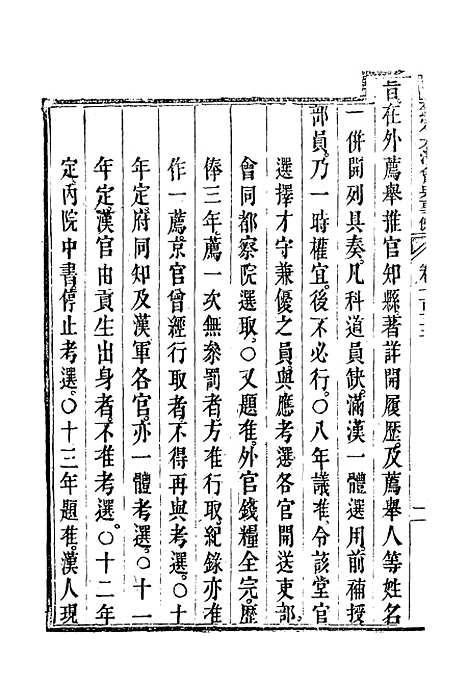 旨在外薦舉推官知縣著詳開履歷及薦舉人等姓名
一併開列具奏凡科道員缺滿漢一體選用前補授
部員乃一時權宜後不必行○八年議准令該堂官
選擇才守兼優之員與應考選各官開送吏部
會同都察院選取○又題准外官錢糧全完歷
俸三年薦一次無參罰者方准行取紀錄亦准
作一薦京官曾經行取者不得再與考選○十
年定府同知及漢軍各官亦一體考選○十一
年定漢官由貢生出身者不准考選○十二年
定內院中書停止考選○十三年題准漢人現